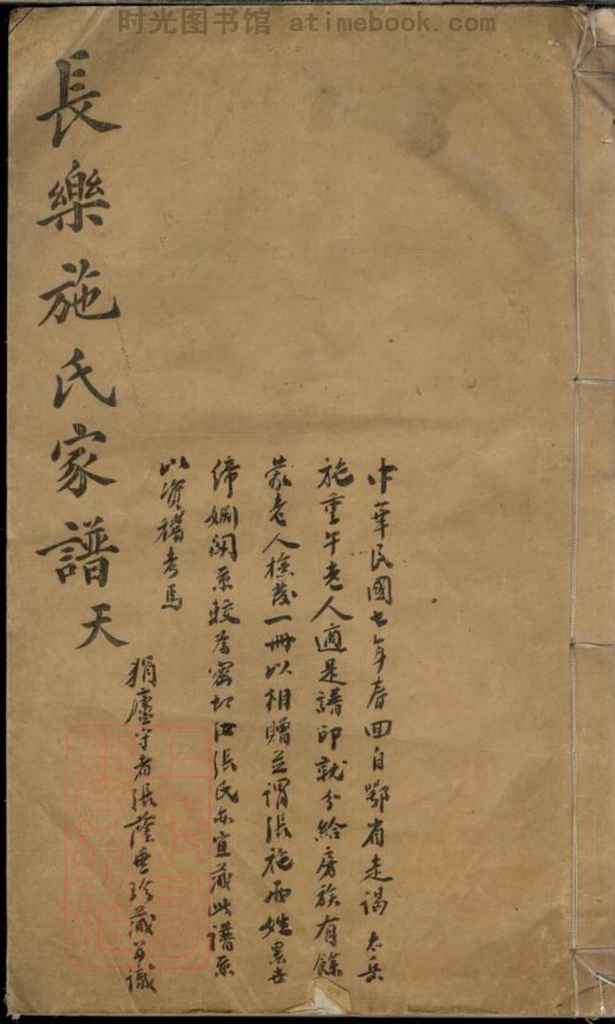 时光图书馆 atimebook.com
長樂施氏家譜 天
中華民國七年春回自鄂省走謁太岳
施重午老人適是譜印就分給房族有餘
蒙老人檢發一冊以相贈並謂張施兩姓累世
締姻關系較為密切江張氏亦宜藏此譜系
以資稽考焉
狷廬守者張蔭垂珍藏并識